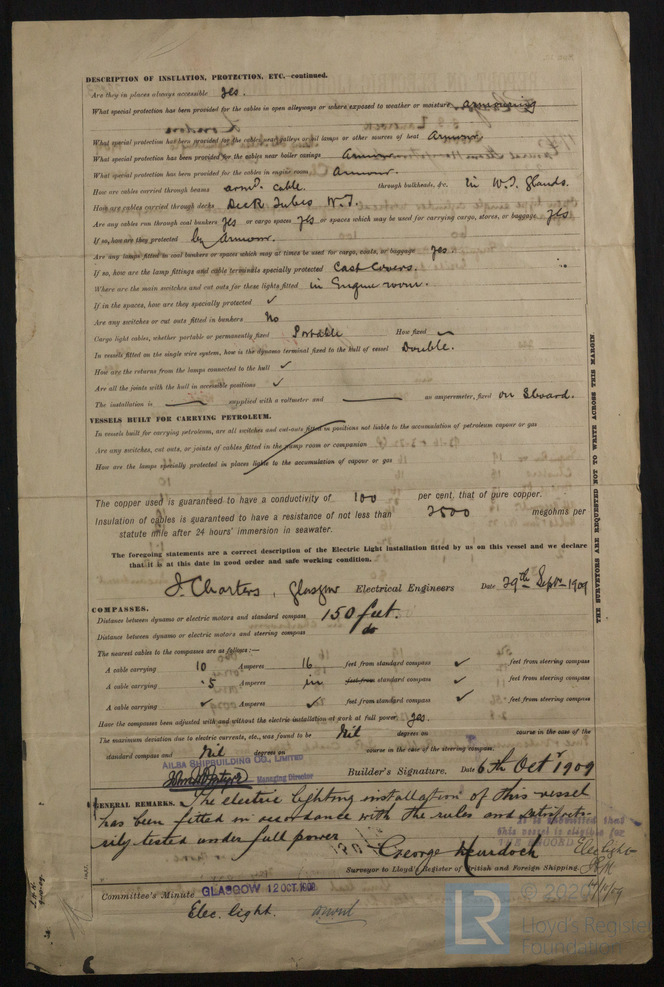 DESCRIPTION OF INSULATION, PROTECTION, ETC.—continued.
Are they in places always accessible yes.
What special protection has been provided for the cables in open alleyways or where exposed to weather or moisture armouring
What special protection has been provided for the cables near galleys or oil lamps or other sources of heat Armour.
What special protection has been provided for the cables near boiler casings Armour
What special protection has been provided for the cables in engine room Armour.
How are cables carried through beams armd. cable. through bulkheads, &c. in W.T. Glands.
How are cables carried through decks Deck Tubes W.T.
Are any cables run through coal bunkers yes or cargo spaces yes or spaces which may be used for carrying cargo, stores, or baggage yes
If so, how are they protected by Armour.
Are any lamps fitted in coal bunkers or spaces which may at times be used for cargo, coals, or baggage yes
If so, how are the lamp fittings and cable terminals specially protected Cast Covers.
Where are the main switches and cut outs for these lights fitted in Engine room.
If in the spaces, how are they specially protected ✓
Are any switches or cut outs fitted in bunkers No
Cargo light cables, whether portable or permanently fixed Portable How fixed
In vessels fitted on the single wire system, how is the dynamo terminal fixed to the hull of vessel Double.
How are the returns from the lamps connected to the hull ✓
Are all the joints with the hull in accessible positions ✓
The installation is — supplied with a voltmeter and — an amperemeter, fixed on Sboard.
VESSELS BUILT FOR CARRYING PETROLEUM.
In vessels built for carrying petroleum, are all switches and cut-outs fitted in positions not liable to the accumulation of petroleum vapour or gas
Are any switches, cut outs, or joints of cables fitted in the pump room or companion
How are the lamps specially protected in places liable to the accumulation of vapour or gas
The copper used is guaranteed to have a conductivity of 100 per cent. that of pure copper.
Insulation of cables is guaranteed to have a resistance of not less than 2500 megohms per
statute mile after 24 hours' immersion in seawater.
The foregoing statements are a correct description of the Electric Light installation fitted by us on this vessel and we declare
that it is at this date in good order and safe working condition.
J. Charters, Glasgow Electrical Engineers Date 29th Septr 1909
COMPASSES.
Distance between dynamo or electric motors and standard compass 150 feet.
Distance between dynamo or electric motors and steering compass do
The nearest cables to the compasses are as follows:—
A cable carrying 10 Amperes 16 feet from standard compass ✓ feet from steering compass
A cable carrying .5 Amperes in feet from standard compass ✓ feet from steering compass
A cable carrying ✓ Amperes ✓ feet from standard compass ✓ feet from steering compass
Have the compasses been adjusted with and without the electric installation at work at full power yes.
The maximum deviation due to electric currents, etc., was found to be Nil degrees on course in the case of the
standard compass and Nil degrees on course in the case of the steering compass.
AILSA SHIPBUILDING CO., LIMITED
Managing Director Builder's Signature. Date 6th Octr 1909
GENERAL REMARKS. The electric lighting installation of this vessel
has been fitted in accordance with the rules and satisfacto-
rily tested under full power
It is submitted that
this vessel is eligible for
THE RECORD Elec light
George Murdoch
Surveyor to Lloyd's Register of British and Foreign Shipping.
Committee's Minute GLASGOW 12 OCT. 1909
Elec. light.
THE SURVEYORS ARE REQUESTED NOT TO WRITE ACROSS THIS MARGIN.
LR
© 2020
Lloyd's Register
Foundation